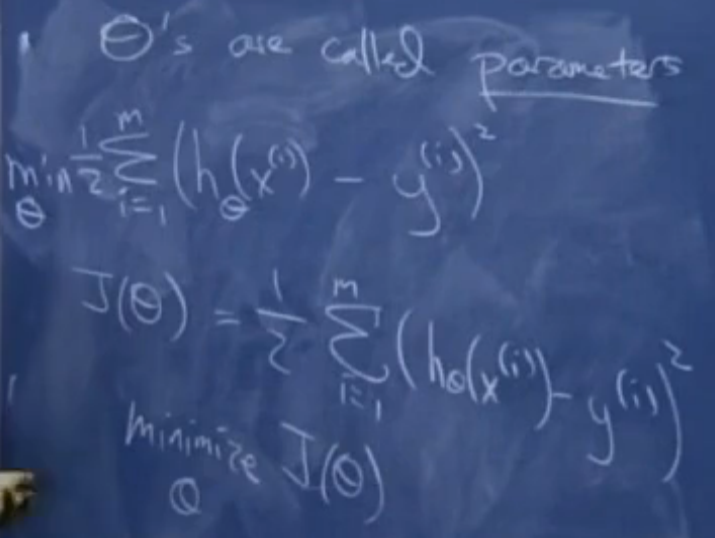 θ's are called parameters
min_θ 1/2 Σ_{i=1}^{m} (h_θ(x^{(i)}) - y^{(i)})^2
J(θ) = 1/2 Σ_{i=1}^{m} (h_θ(x^{(i)}) - y^{(i)})^2
minimize_θ J(θ)